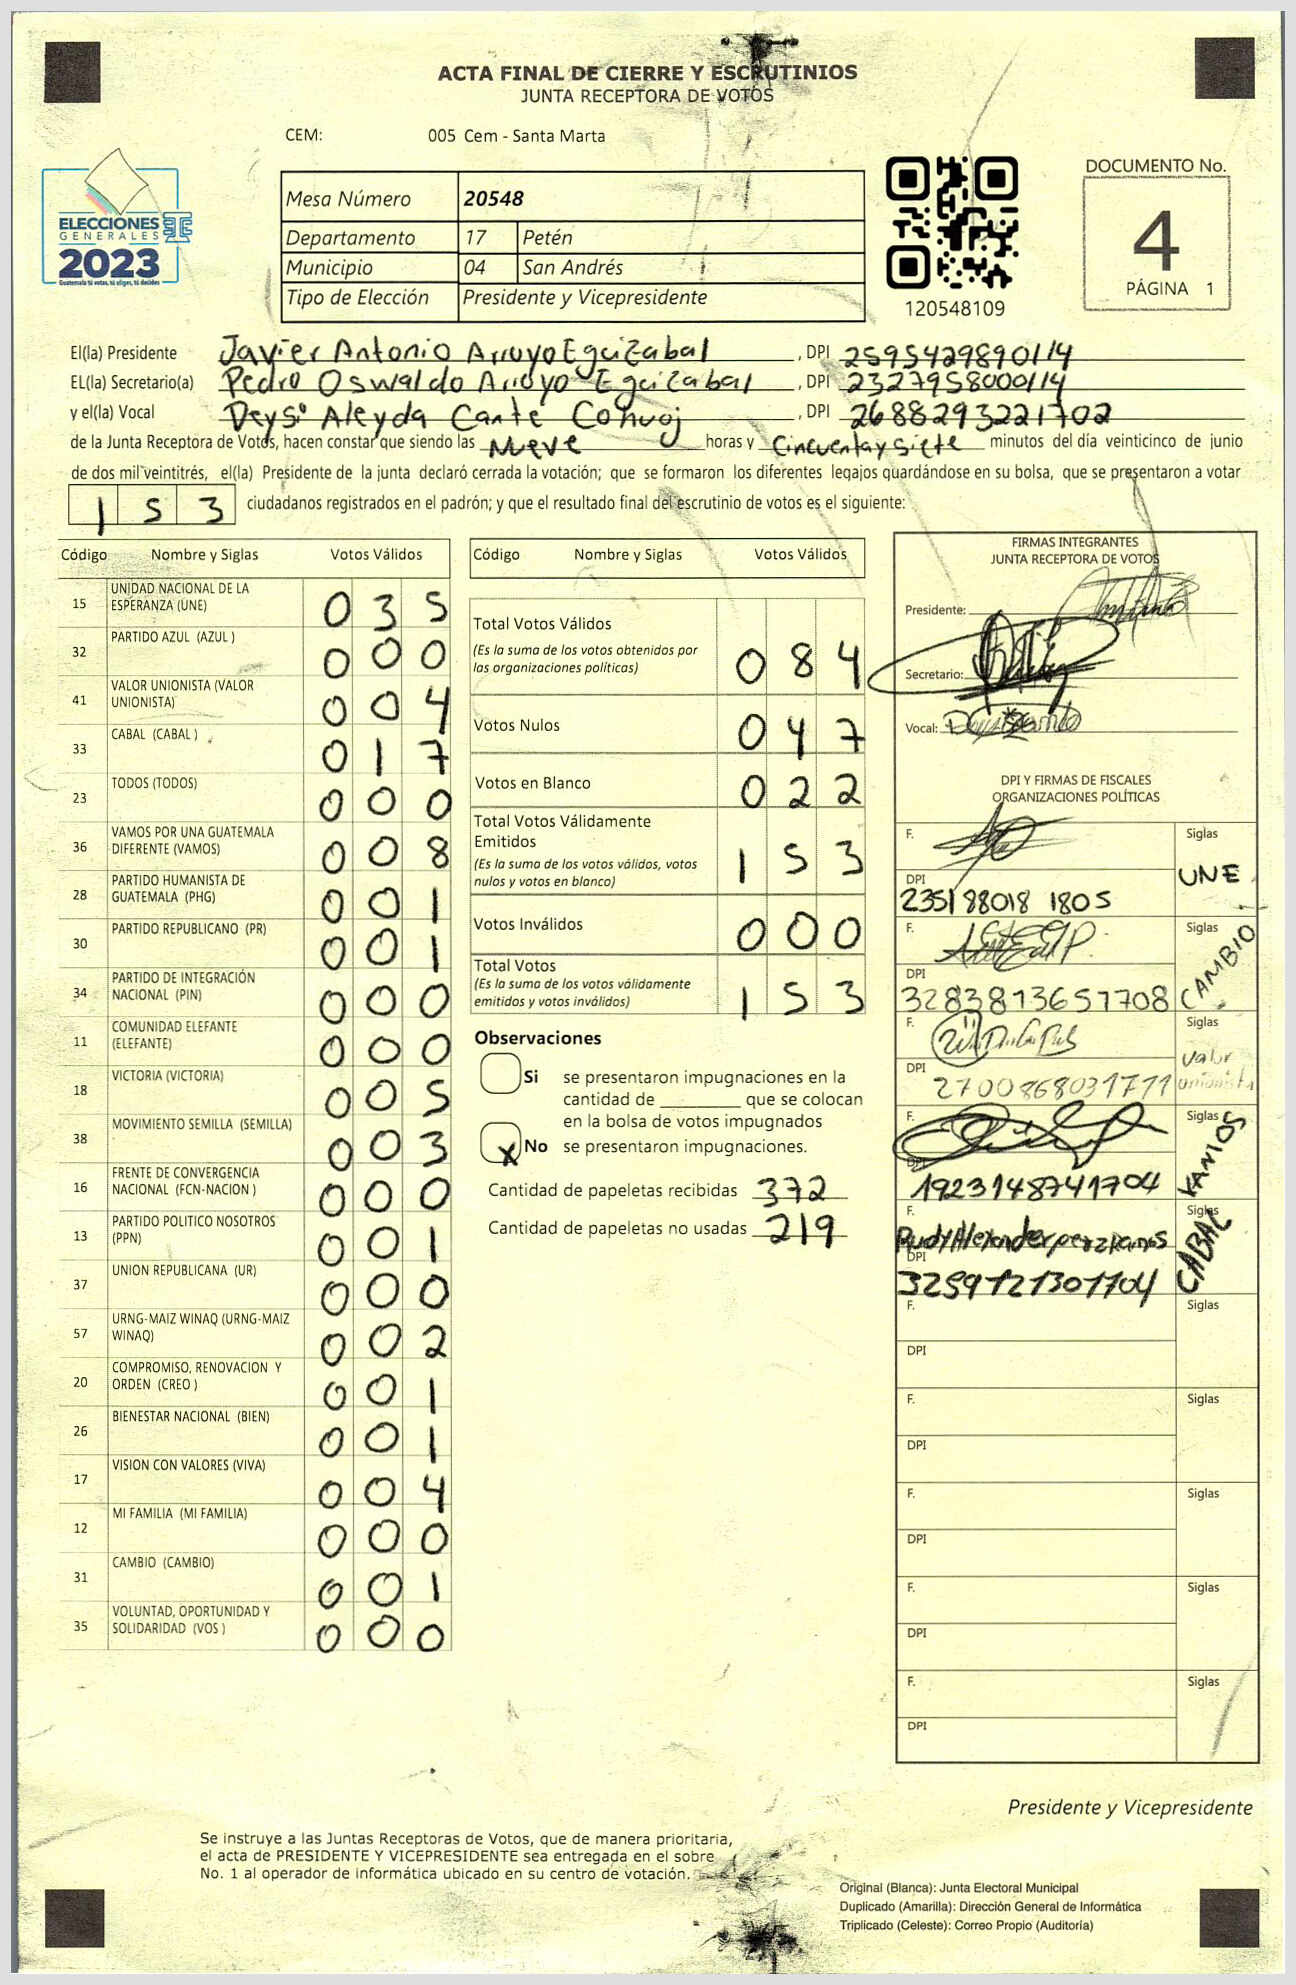 ACTA FINAL DE CIERRE Y ESCRUTINIOS
JUNTA RECEPTORA DE VOTOS
CEM: 005 Cem - Santa Marta
ELECCIONES
GENERALES
2023
Guatemala tú votas, tú eliges, tú decides
Mesa Número 20548
Departamento 17 Petén
Municipio 04 San Andrés
Tipo de Elección Presidente y Vicepresidente
120548109
DOCUMENTO No.
4
PÁGINA 1
El(la) Presidente Javier Antonio Arroyo Eguizabal , DPI 2595429890114
EL(la) Secretario(a) Pedro Oswaldo Arroyo Eguizabal , DPI 2327958000114
y el(la) Vocal Deysi Aleyda Canté Cohuoj , DPI 2688293221702
de la Junta Receptora de Votos, hacen constar que siendo las Nueve horas y Cincuenta y siete minutos del día veinticinco de junio
de dos mil veintitrés, el(la) Presidente de la junta declaró cerrada la votación; que se formaron los diferentes legajos guardándose en su bolsa, que se presentaron a votar
153 ciudadanos registrados en el padrón; y que el resultado final del escrutinio de votos es el siguiente:
Código Nombre y Siglas Votos Válidos
15 UNIDAD NACIONAL DE LA ESPERANZA (UNE) 035
32 PARTIDO AZUL (AZUL ) 000
41 VALOR UNIONISTA (VALOR UNIONISTA) 004
33 CABAL (CABAL ) 017
23 TODOS (TODOS) 000
36 VAMOS POR UNA GUATEMALA DIFERENTE (VAMOS) 008
28 PARTIDO HUMANISTA DE GUATEMALA (PHG) 001
30 PARTIDO REPUBLICANO (PR) 001
34 PARTIDO DE INTEGRACIÓN NACIONAL (PIN) 000
11 COMUNIDAD ELEFANTE (ELEFANTE) 000
18 VICTORIA (VICTORIA) 005
38 MOVIMIENTO SEMILLA (SEMILLA) 003
16 FRENTE DE CONVERGENCIA NACIONAL (FCN-NACION ) 000
13 PARTIDO POLITICO NOSOTROS (PPN) 001
37 UNION REPUBLICANA (UR) 000
57 URNG-MAIZ WINAQ (URNG-MAIZ WINAQ) 002
20 COMPROMISO, RENOVACION Y ORDEN (CREO ) 001
26 BIENESTAR NACIONAL (BIEN) 001
17 VISION CON VALORES (VIVA) 004
12 MI FAMILIA (MI FAMILIA) 000
31 CAMBIO (CAMBIO) 001
35 VOLUNTAD, OPORTUNIDAD Y SOLIDARIDAD (VOS ) 000
Código Nombre y Siglas Votos Válidos
Total Votos Válidos
(Es la suma de los votos obtenidos por las organizaciones políticas) 084
Votos Nulos 047
Votos en Blanco 022
Total Votos Válidamente Emitidos
(Es la suma de los votos válidos, votos nulos y votos en blanco) 153
Votos Inválidos 000
Total Votos
(Es la suma de los votos válidamente emitidos y votos inválidos) 153
Observaciones
Si se presentaron impugnaciones en la
cantidad de ________ que se colocan
en la bolsa de votos impugnados
X No se presentaron impugnaciones.
Cantidad de papeletas recibidas 372
Cantidad de papeletas no usadas 219
FIRMAS INTEGRANTES
JUNTA RECEPTORA DE VOTOS
Presidente:
Secretario:
Vocal:
DPI Y FIRMAS DE FISCALES
ORGANIZACIONES POLÍTICAS
F. Siglas
UNE
DPI
235188018 1805
F. Siglas
CAMBIO
DPI
3283813651708
F. Siglas
valor unionista
DPI
2700868031711
F. Siglas
VAMOS
DPI
1923148741704
F. Siglas
Rudy Alexander perez ramos
CABAL
DPI
3259121301704
F. Siglas
DPI
F. Siglas
DPI
F. Siglas
DPI
F. Siglas
DPI
F. Siglas
DPI
Presidente y Vicepresidente
Se instruye a las Juntas Receptoras de Votos, que de manera prioritaria,
el acta de PRESIDENTE Y VICEPRESIDENTE sea entregada en el sobre
No. 1 al operador de informática ubicado en su centro de votación.
Original (Blanca): Junta Electoral Municipal
Duplicado (Amarilla): Dirección General de Informática
Triplicado (Celeste): Correo Propio (Auditoría)